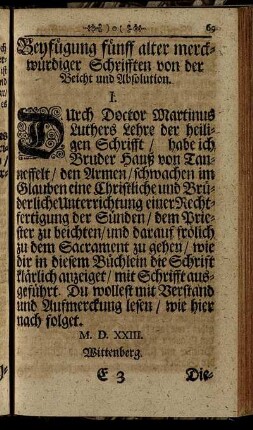 69
Beyfügung fünff alter merck-
würdiger Schrifften von der
Beicht und Absolution.
I.
Durch Doctor Martinus
Luthers Lehre der heili-
gen Schrifft / habe ich
Bruder Hauß von Tan-
neffelt / den Armen / schwachen im
Glauben eine Christliche und Brü-
derliche Unterrichtung einer Recht-
fertigung der Sünden / dem Prie-
ster zu beichten / und darauf frölich
zu dem Sacrament zu gehen / wie
dir in diesem Büchlein die Schrift
klärlich anzeiget / mit Schrift aus-
geführt. Du wollest mit Verstand
und Aufmerckung lesen / wie hier
nach folget.
M. D. XXIII.
Wittenberg.
E 3 Die-